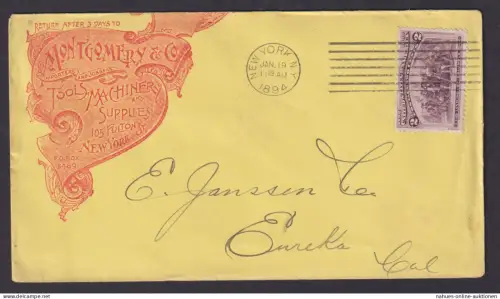 RETURN AFTER 5 DAYS TO
MONTGOMERY & CO.
TOOLS, MACHINERY
AND
SUPPLIES
105 FULTON ST.
NEW YORK
P.O. BOX
NEW YORK N.Y.
JAN. 19
1894
2 2
E. Janssen Co.
Eureka
Cal
© nahuen-online @ delcampe.net